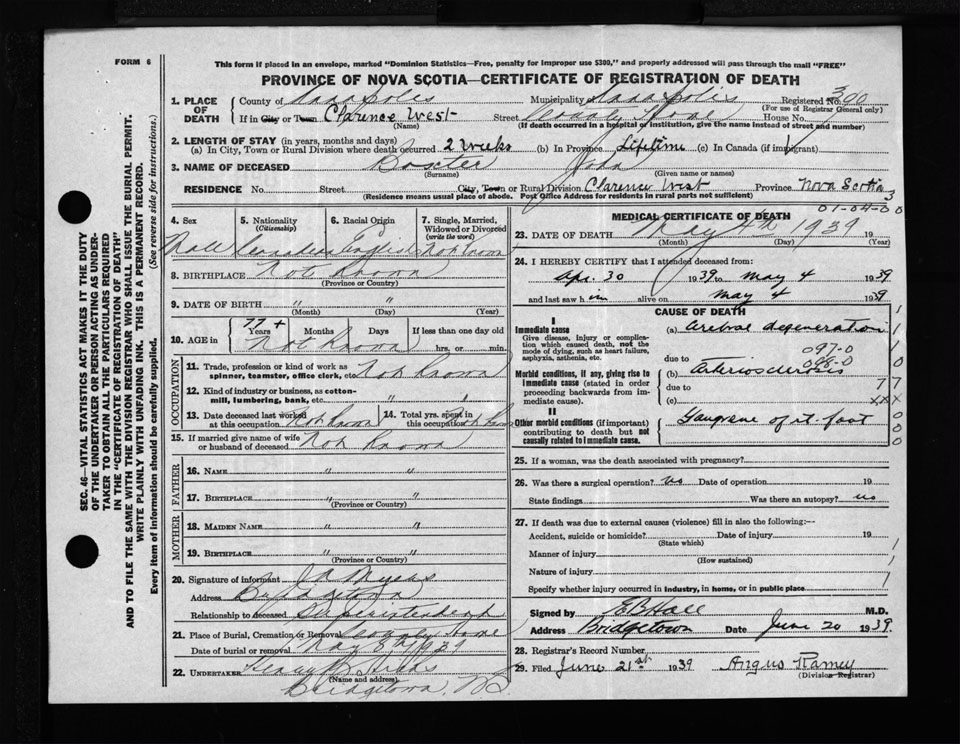 FORM 6
This form if placed in an envelope, marked "Dominion Statistics—Free, penalty for improper use $300," and properly addressed will pass through the mail "FREE"
PROVINCE OF NOVA SCOTIA—CERTIFICATE OF REGISTRATION OF DEATH
1. PLACE OF DEATH { County of Annapolis Municipality of Annapolis Registered No. 390
(For use of Registrar General only)
If in City or Town Clarence West Street County Home House No.
(Name) (If death occurred in a hospital or institution, give the name instead of street and number)
2. LENGTH OF STAY (in years, months and days)
(a) In City, Town or Rural Division where death occurred 2 weeks (b) In Province Lifetime (c) In Canada (if immigrant)
3. NAME OF DECEASED Boxter John
(Surname) (Given name or names)
RESIDENCE No. Street City, Town or Rural Division Clarence West Province Nova Scotia
(Residence means usual place of abode. Post Office Address for residents in rural parts not sufficient) 3
01-04-00
4. Sex 5. Nationality 6. Racial Origin 7. Single, Married, Widowed or Divorced
(Citizenship) (write the word)
Male Canadian English Not Known
8. BIRTHPLACE Not Known
(Province or Country)
9. DATE OF BIRTH " "
(Month) (Day) (Year)
77 +
10. AGE in { Years Months Days If less than one day old
Not Known hrs. or min.
OCCUPATION
11. Trade, profession or kind of work as spinner, teamster, office clerk, etc. Not Known
12. Kind of industry or business, as cotton-mill, lumbering, bank, etc. " "
13. Date deceased last worked at this occupation Not Known 14. Total yrs. spent in this occupation Not Known
15. If married give name of wife or husband of deceased Not Known
FATHER
16. NAME " "
17. BIRTHPLACE " "
(Province or Country)
MOTHER
18. MAIDEN NAME " "
19. BIRTHPLACE " "
(Province or Country)
20. Signature of informant J A Myers
Address Bridgetown
Relationship to deceased Superintendent
21. Place of Burial, Cremation or Removal County Home
Date of burial or removal May 5th 1939
22. UNDERTAKER Henry B Hicks
(Name and address)
Bridgetown, NS
MEDICAL CERTIFICATE OF DEATH
23. DATE OF DEATH May 4th 1939 19
(Month) (Day) (Year)
24. I HEREBY CERTIFY that I attended deceased from:
Apr. 30 1939 to May 4 1939
and last saw him alive on May 4 1939
CAUSE OF DEATH
I
Immediate cause (a) Cerebral degeneration
Give disease, injury or complication which caused death, not the mode of dying, such as heart failure, asphyxia, asthenia, etc.
due to 097-0
(b) Arteriosclerosis
Morbid conditions, if any, giving rise to immediate cause (stated in order proceeding backwards from immediate cause).
due to 77
(c) xxx
II
Other morbid conditions (if important) contributing to death but not causally related to immediate cause. Gangrene of rt. foot
25. If a woman, was the death associated with pregnancy?
26. Was there a surgical operation? no Date of operation 19
State findings Was there an autopsy? no
27. If death was due to external causes (violence) fill in also the following:—
Accident, suicide or homicide? Date of injury 19
(State which)
Manner of injury
(How sustained)
Nature of injury
Specify whether injury occurred in Industry, in home, or in public place
Signed by E B Hall M.D.
Address Bridgetown Date June 20 1939.
28. Registrar's Record Number
29. Filed June 21st 1939 Angus Ramey
(Division Registrar)
SEC. 46—VITAL STATISTICS ACT MAKES IT THE DUTY
OF THE UNDERTAKER OR PERSON ACTING AS UNDER-
TAKER TO OBTAIN ALL THE PARTICULARS REQUIRED
IN THE "CERTIFICATE OF REGISTRATION OF DEATH"
AND TO FILE THE SAME WITH THE DIVISION REGISTRAR WHO SHALL ISSUE THE BURIAL PERMIT.
WRITE PLAINLY WITH UNFADING INK. THIS IS A PERMANENT RECORD.
Every item of information should be carefully supplied. (See reverse side for instructions.)